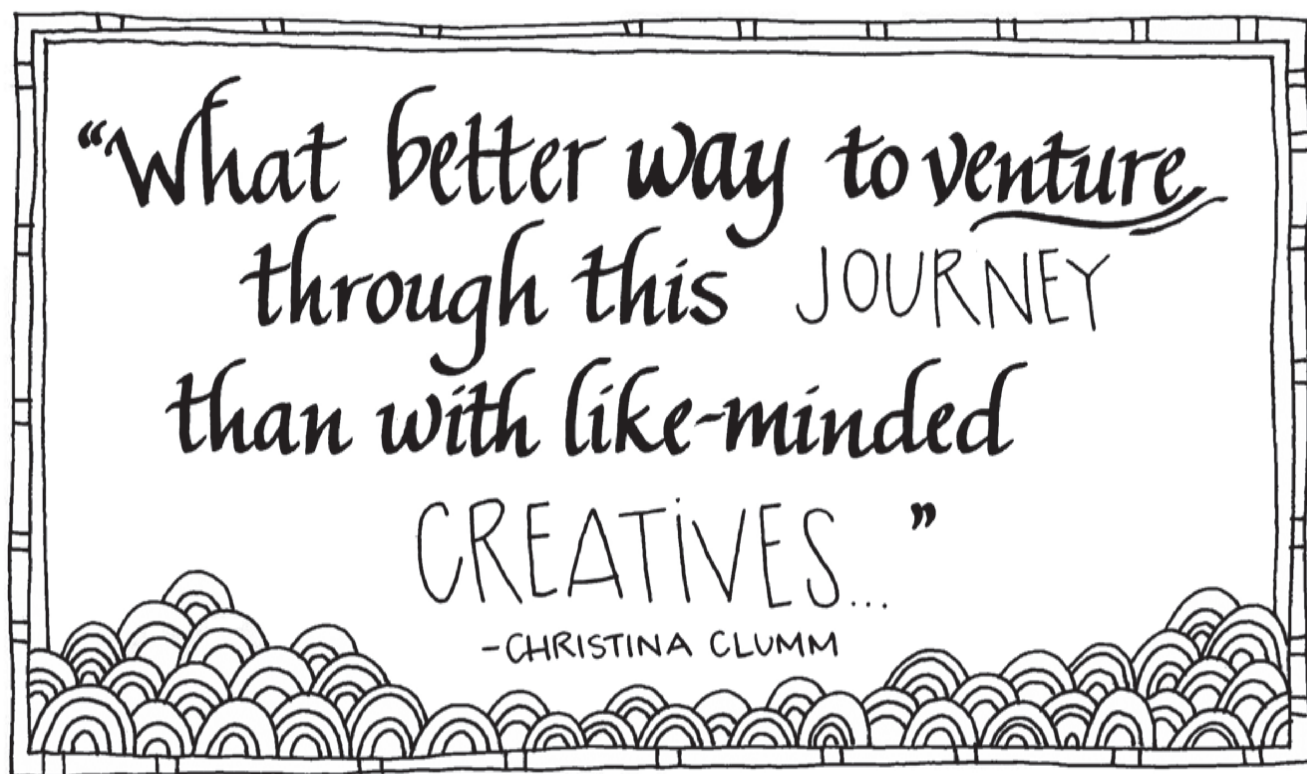 “What better way to venture
through this JOURNEY
than with like-minded
CREATiVES...”
-CHRISTINA CLUMM